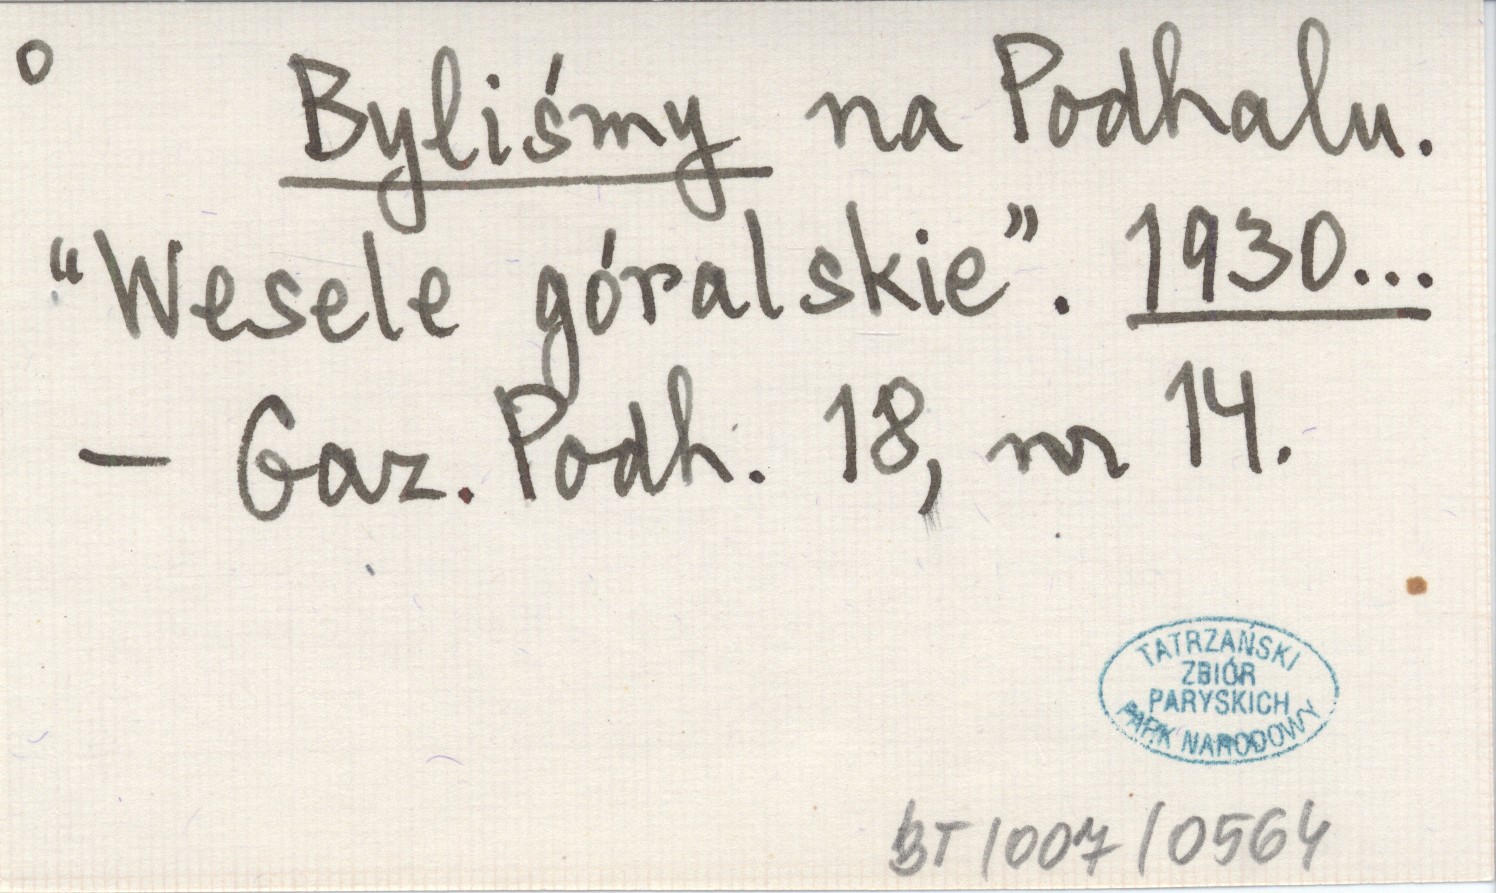 o Byliśmy na Podhalu.
“Wesele góralskie”. 1930...
— Gaz. Podh. 18, nr 14.
TATRZAŃSKI
ZBIÓR
PARYSKICH
PARK NARODOWY
BT/007/0564